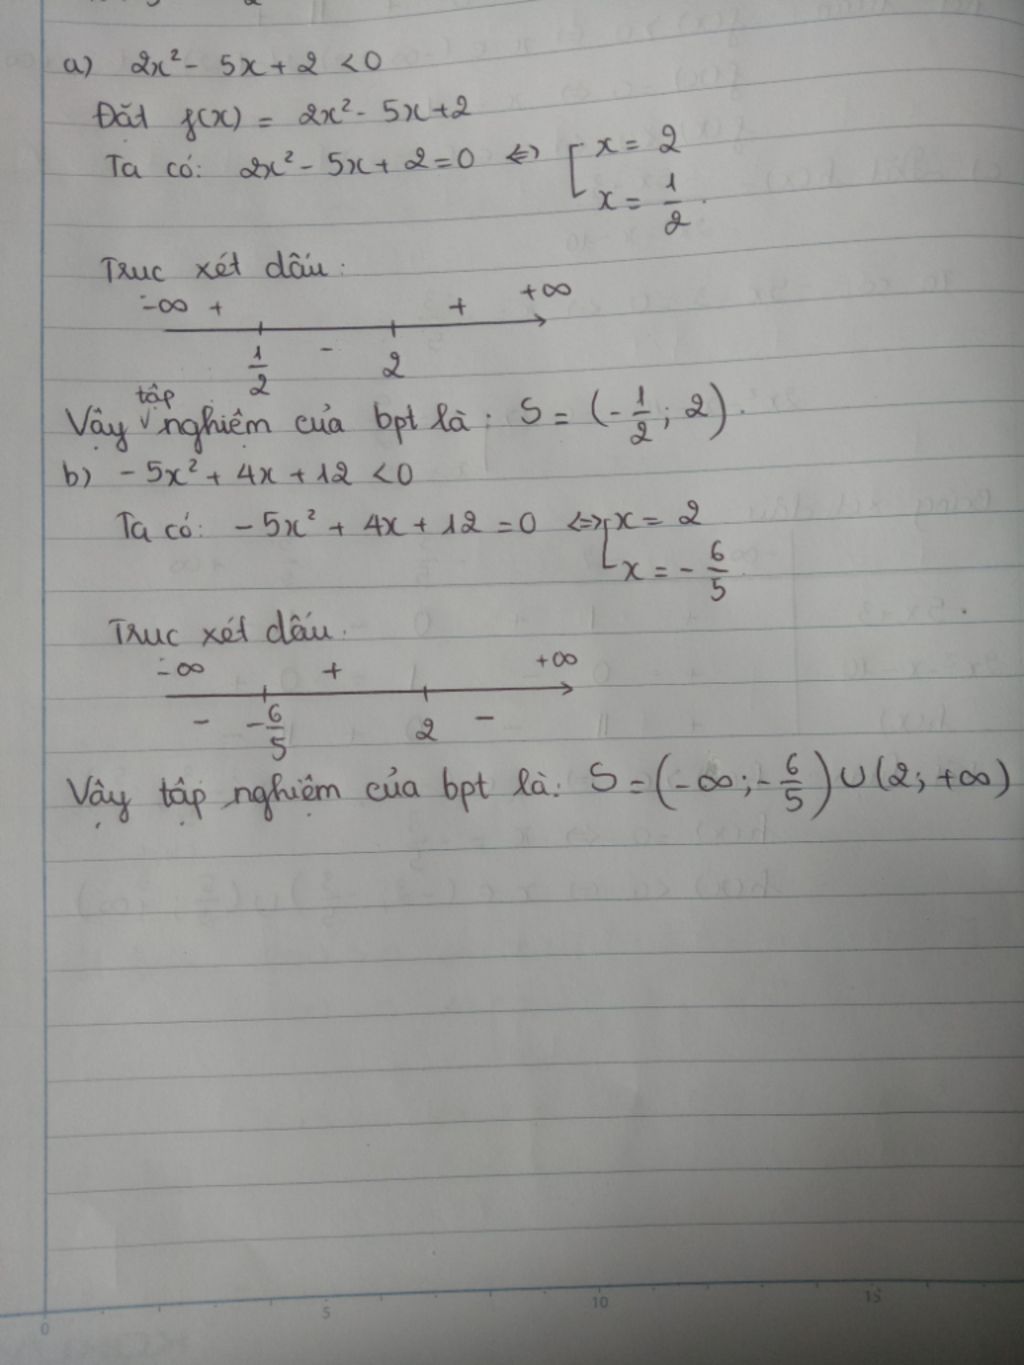 a) 2x² - 5x + 2 < 0
Đặt f(x) = 2x² - 5x + 2
Ta có: 2x² - 5x + 2 = 0 ⇔ [ x = 2
x = 1/2.
Trục xét dấu:
-∞ + + +∞
1/2 - 2
tập
Vậy nghiệm của bpt là: S = (-1/2; 2).
b) - 5x² + 4x + 12 < 0
Ta có: - 5x² + 4x + 12 = 0 ⇔ [ x = 2
x = - 6/5
Trục xét dấu.
-∞ + +∞
- -6/5 2 -
Vậy tập nghiệm của bpt là: S = (-∞; -6/5) ∪ (2; +∞)
0 5 10 15